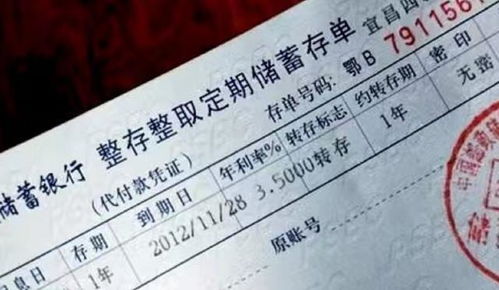 储蓄银行 整存整取定期储蓄存单 宜昌
(代付款凭证) 存单号码: 鄂B 7911561
息日 存期 到期日 年利率% 转存标志 约转存期 密印
1年 2012/11/28 3.5000 转存 1年 无密
原账号